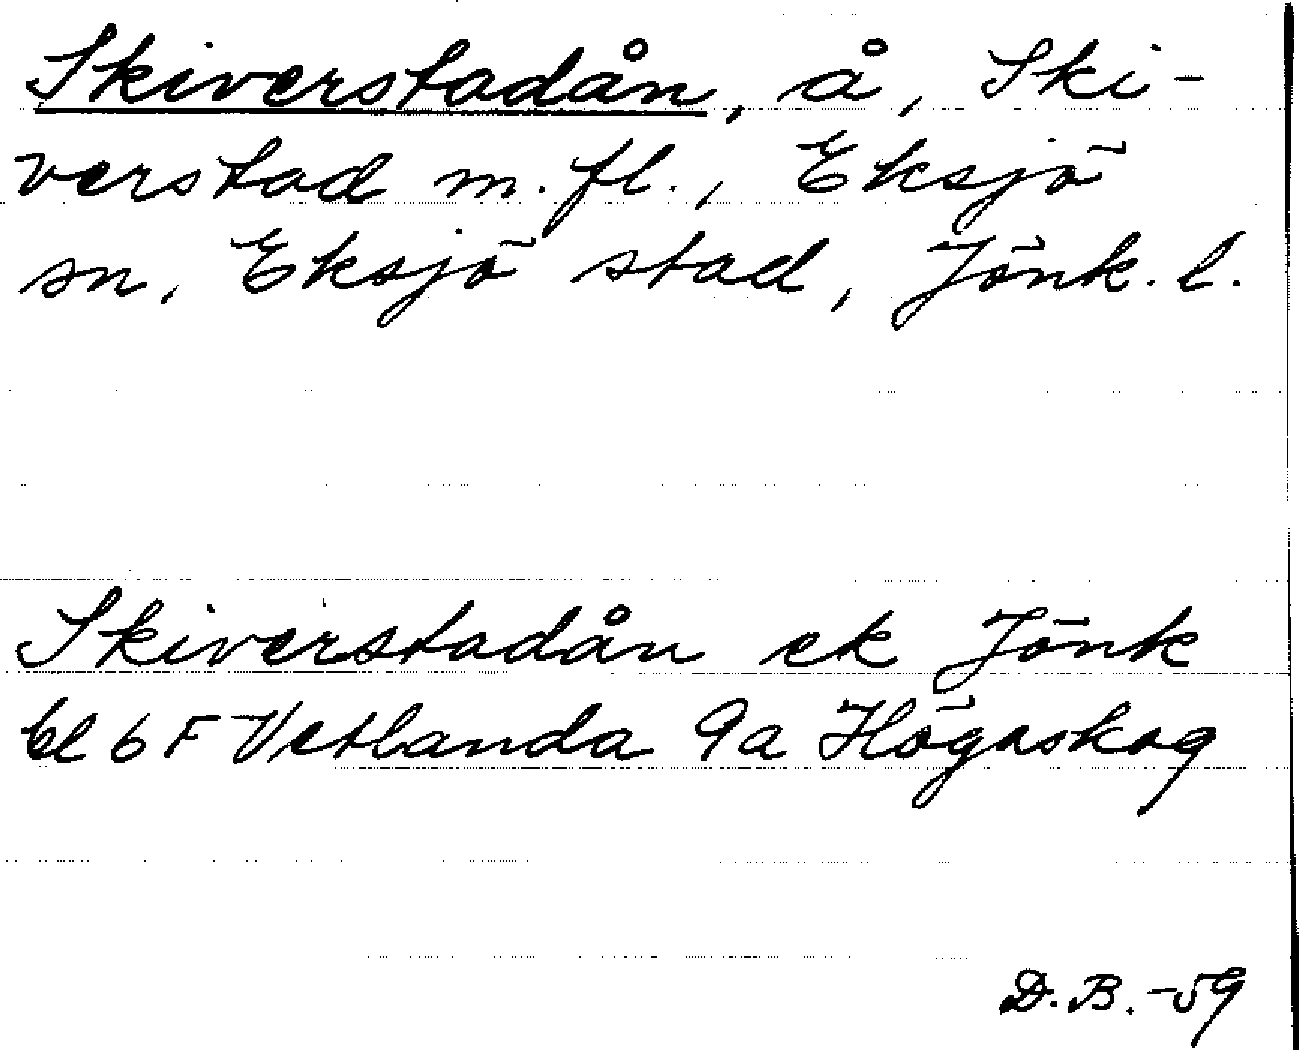 Skiverstadån, å, Ski-
verstad m. fl., Eksjö
sn, Eksjö stad, Jönk. l.
Skiverstadån ek Jönk
bl 6 F Vetlanda 9a Högaskog
D.B. -59